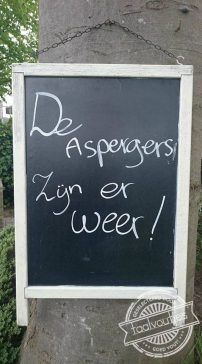 De
Aspergers
Zijn er
weer!
taalvoutjes